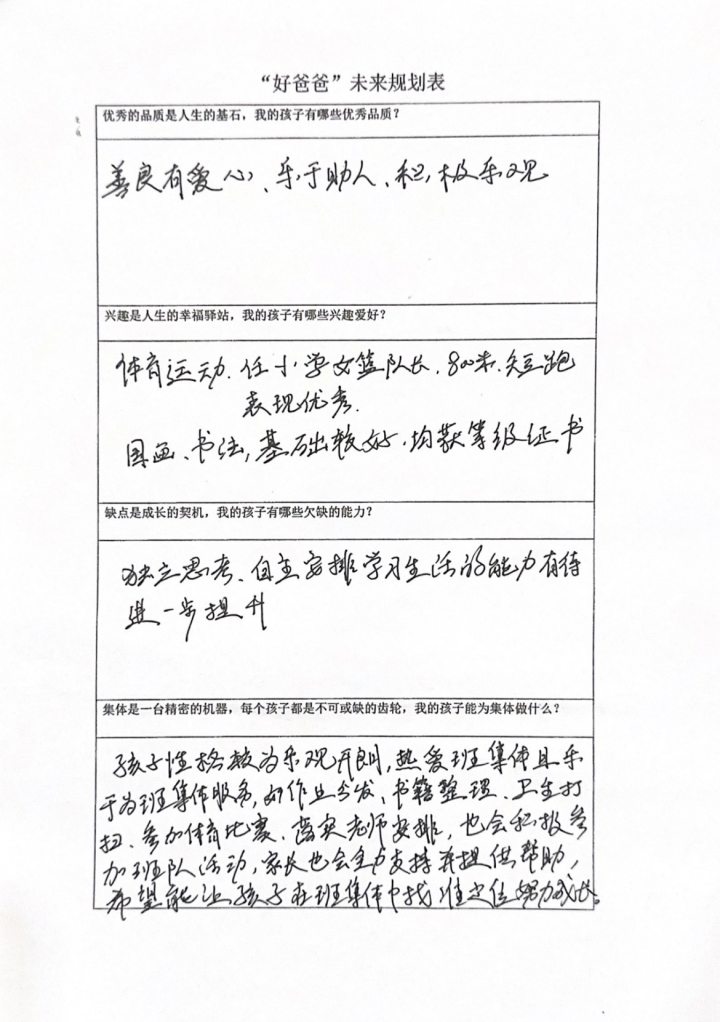 “好爸爸”未来规划表
优秀的品质是人生的基石，我的孩子有哪些优秀品质？
善良有爱心、乐于助人、积极乐观
兴趣是人生的幸福驿站，我的孩子有哪些兴趣爱好？
体育运动、任小学女篮队长、800米、短跑
表现优秀.
国画、书法，基础较好，均获等级证书
缺点是成长的契机，我的孩子有哪些欠缺的能力？
独立思考、自主安排学习生活的能力有待
进一步提升
集体是一台精密的机器，每个孩子都是不可或缺的齿轮，我的孩子能为集体做什么？
孩子性格较为乐观开朗，热爱班集体且乐
于为班集体服务，如作业分发、书籍整理、卫生打
扫、参加体育比赛、落实老师安排，也会积极参
加班队活动，家长也会全力支持并提供帮助，
希望能让孩子在班集体中找准定位努力成长。